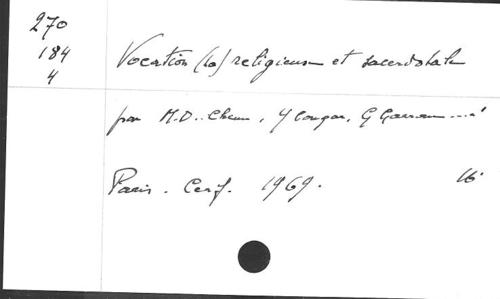 270
184
4
Vocation (la) religieuse et sacerdotale
par M.D. Chenu, Y Congar, G Garrone ...
Paris. Cerf. 1969. 16